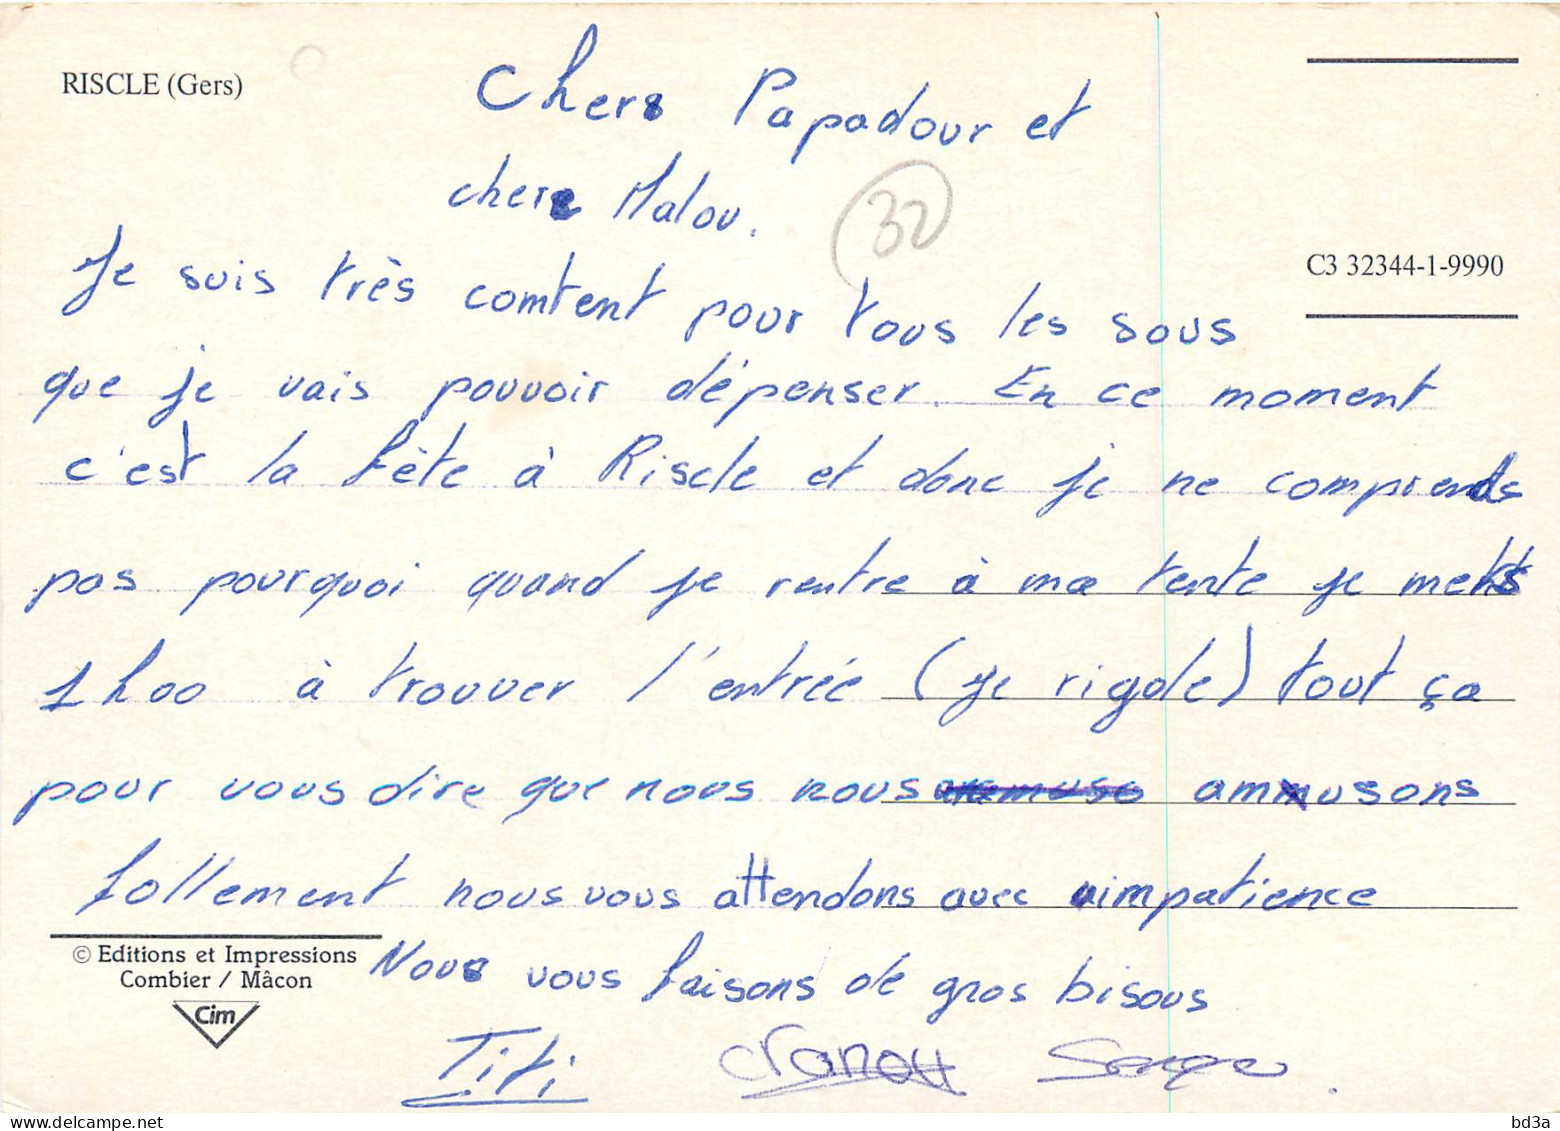 RISCLE (Gers)
Chers Papadour et
chers Malou.
32
C3 32344-1-9990
Je suis très comtent pour tous les sous
que je vais pouvoir dépenser. En ce moment
c'est la fête à Riscle et donc je ne comprends
pas pourquoi quand je rentre à ma tente je mets
1h00 à trouver l'entrée (je rigole) tout ça
pour vous dire que nous nous amusons
follement nous vous attendons avec impatience
© Editions et Impressions
Combier / Mâcon
Cim
Nous vous faisons de gros bisous
Titi
bd3a